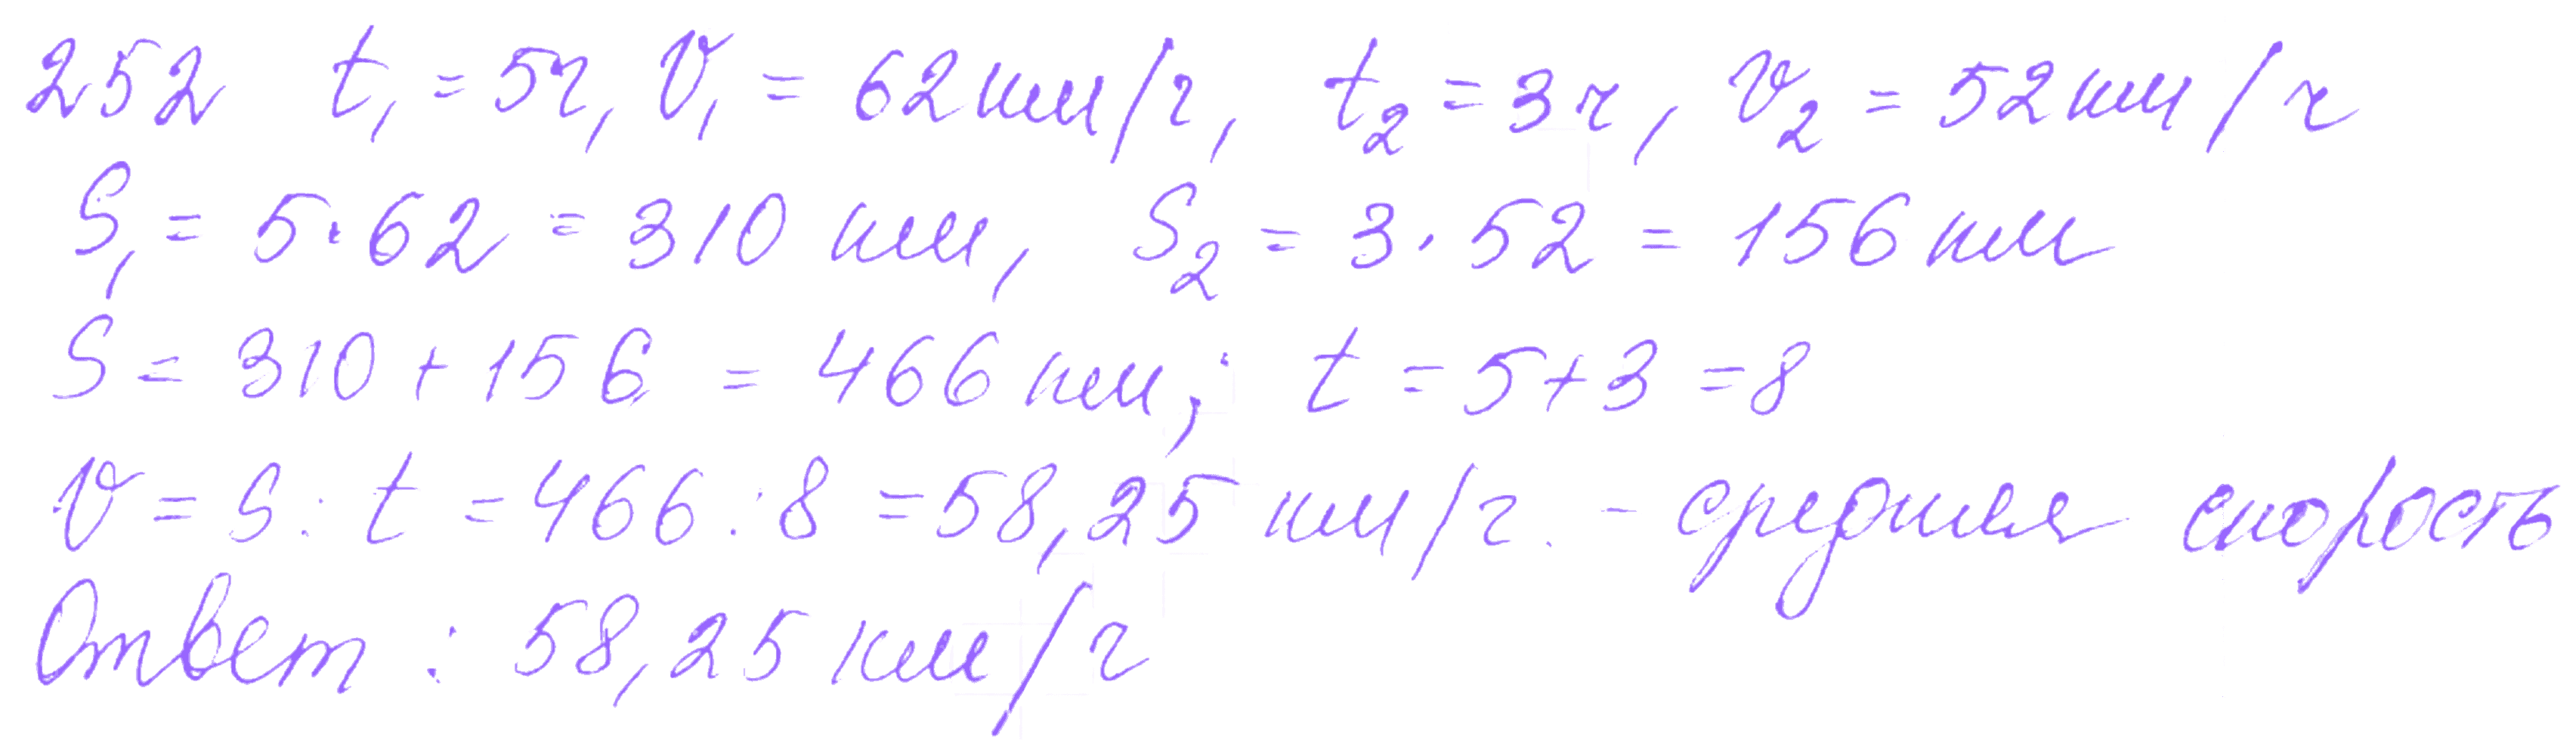 252 t₁ = 5ч, V₁ = 62км/ч, t₂ = 3ч, v₂ = 52км/ч
S₁ = 5·62 = 310 км, S₂ = 3·52 = 156 км
S = 310 + 156 = 466 км; t = 5+3 = 8
V = S : t = 466 : 8 = 58,25 км/ч. - средняя скорость
Ответ : 58,25 км/ч